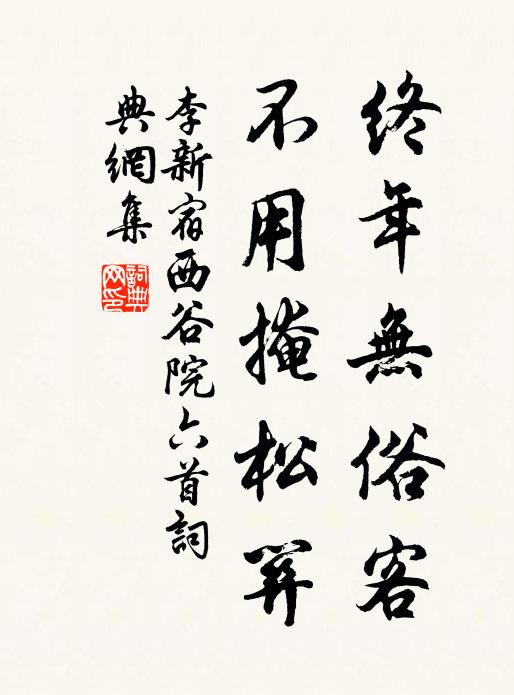 終年無俗客
不用掩松關
李新宿西谷院六首詞
典網集
詞典
网印